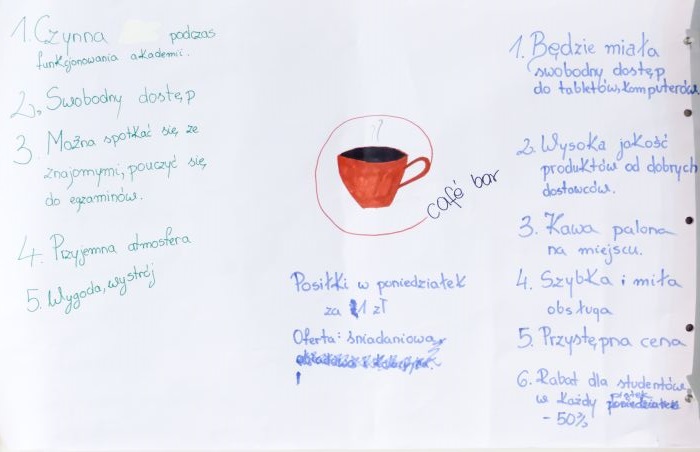 1. Czynna podczas
funkcjonowania akademii.
2. Swobodny dostęp
3. Można spotkać się ze
znajomymi, pouczyć się
do egzaminów.
4. Przyjemna atmosfera
5. Wygoda, wystrój
café bar
Posiłki w poniedziałek
za 1 zł
Oferta: śniadaniowa
1. Będzie miała
swobodny dostęp
do tabletów, komputerów.
2. Wysoka jakość
produktów od dobrych
dostawców.
3. Kawa palona
na miejscu.
4. Szybka i miła
obsługa
5. Przystępna cena
6. Rabat dla studentów
w każdy piątek
- 50%